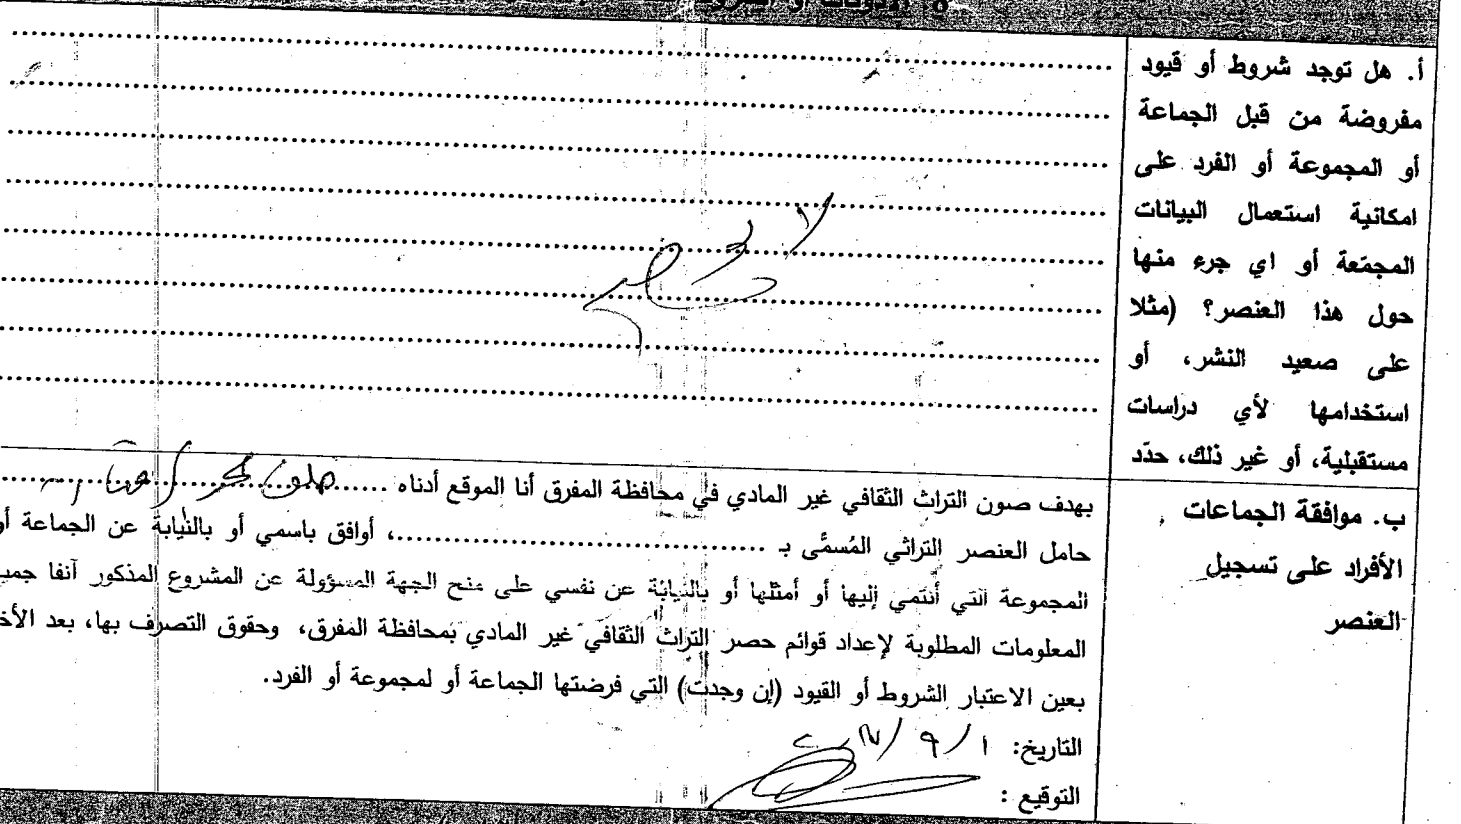 أ. هل توجد شروط أو قيود
مفروضة من قبل الجماعة
أو المجموعة أو الفرد على
امكانية استعمال البيانات
المجمّعة أو اي جزء منها
حول هذا العنصر؟ (مثلا
على صعيد النشر، أو
استخدامها لأي دراسات
مستقبلية، أو غير ذلك، حدّد
لا يوجد
ب. موافقة الجماعات
الأفراد على تسجيل
العنصر
بهدف صون التراث الثقافي غير المادي في محافظة المفرق أنا الموقع أدناه
حامل العنصر التراثي المُسمَّى بـ ........................................، أوافق باسمي أو بالنيابة عن الجماعة أو
المجموعة التي أنتمي إليها أو أمثلها أو بالنيابة عن نفسي على منح الجهة المسؤولة عن المشروع المذكور آنفا جمي
المعلومات المطلوبة لإعداد قوائم حصر التراث الثقافي غير المادي بمحافظة المفرق، وحقوق التصرف بها، بعد الأخ
بعين الاعتبار الشروط أو القيود (إن وجدت) التي فرضتها الجماعة أو لمجموعة أو الفرد.
التاريخ: ١/٩/
التوقيع :